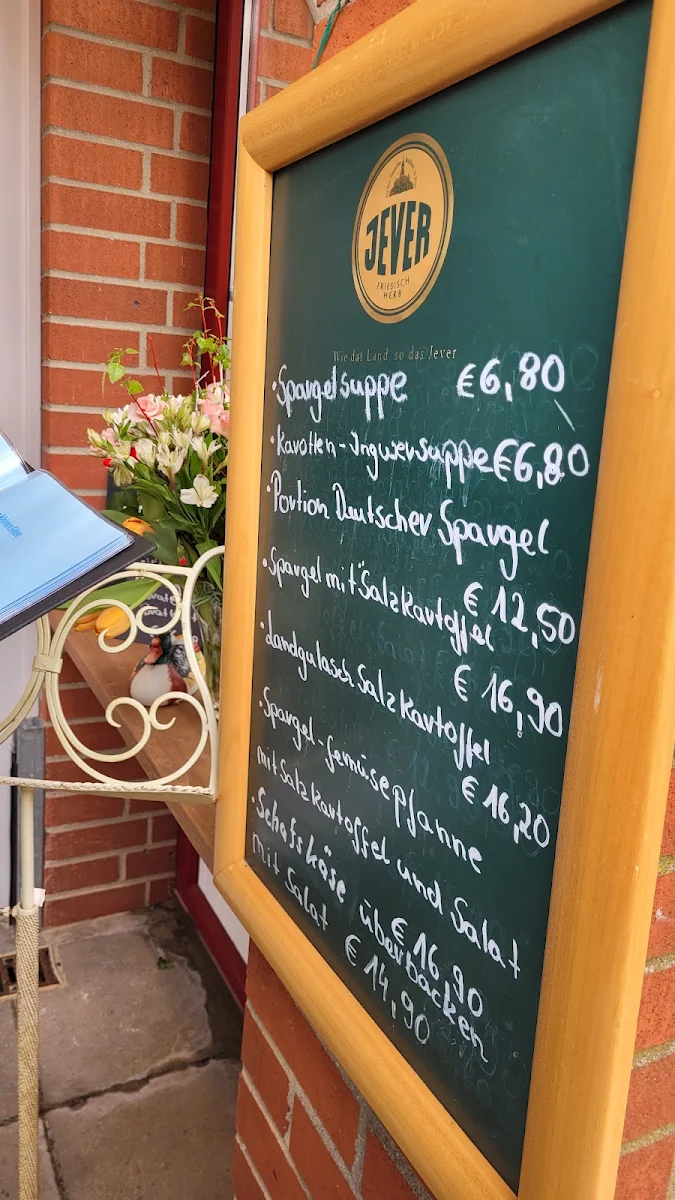 JEVER
FRIESISCH
HERB
Wie das Land, so das Jever
·Spargelsuppe €6,80
·Karotten-Ingwersuppe €6,80
·Portion Deutscher Spargel
€ 12,50
·Spargel mit Salzkartoffel
€ 16,90
·Landgulasch Salzkartoffel
€ 16,20
·Spargel-Gemüsepfanne
mit Salzkartoffel und Salat
€ 16,90
·Schafskäse überbacken
mit Salat
€ 14,90